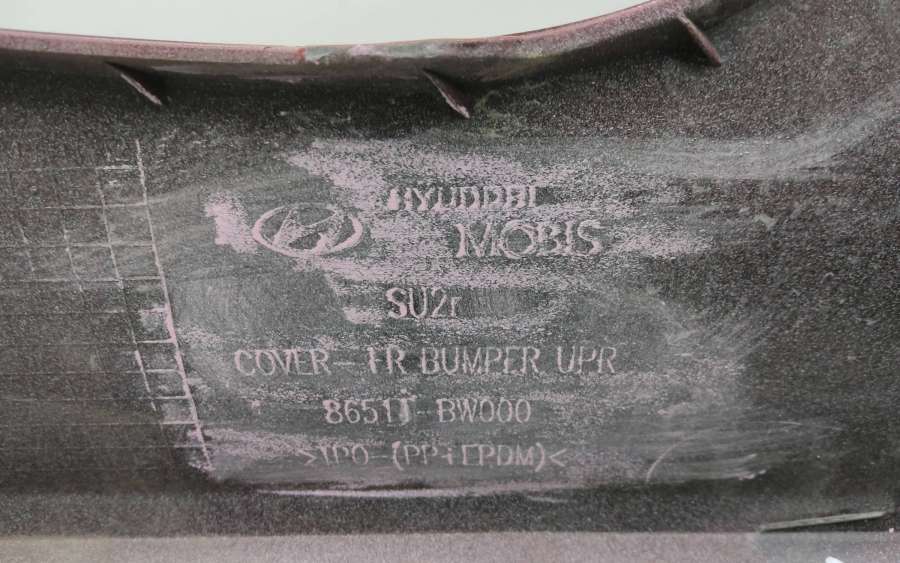 HYUNDAI
MOBIS
SU2r
COVER-FR BUMPER UPR
86511-BW000
>TPO-(PP+EPDM)<